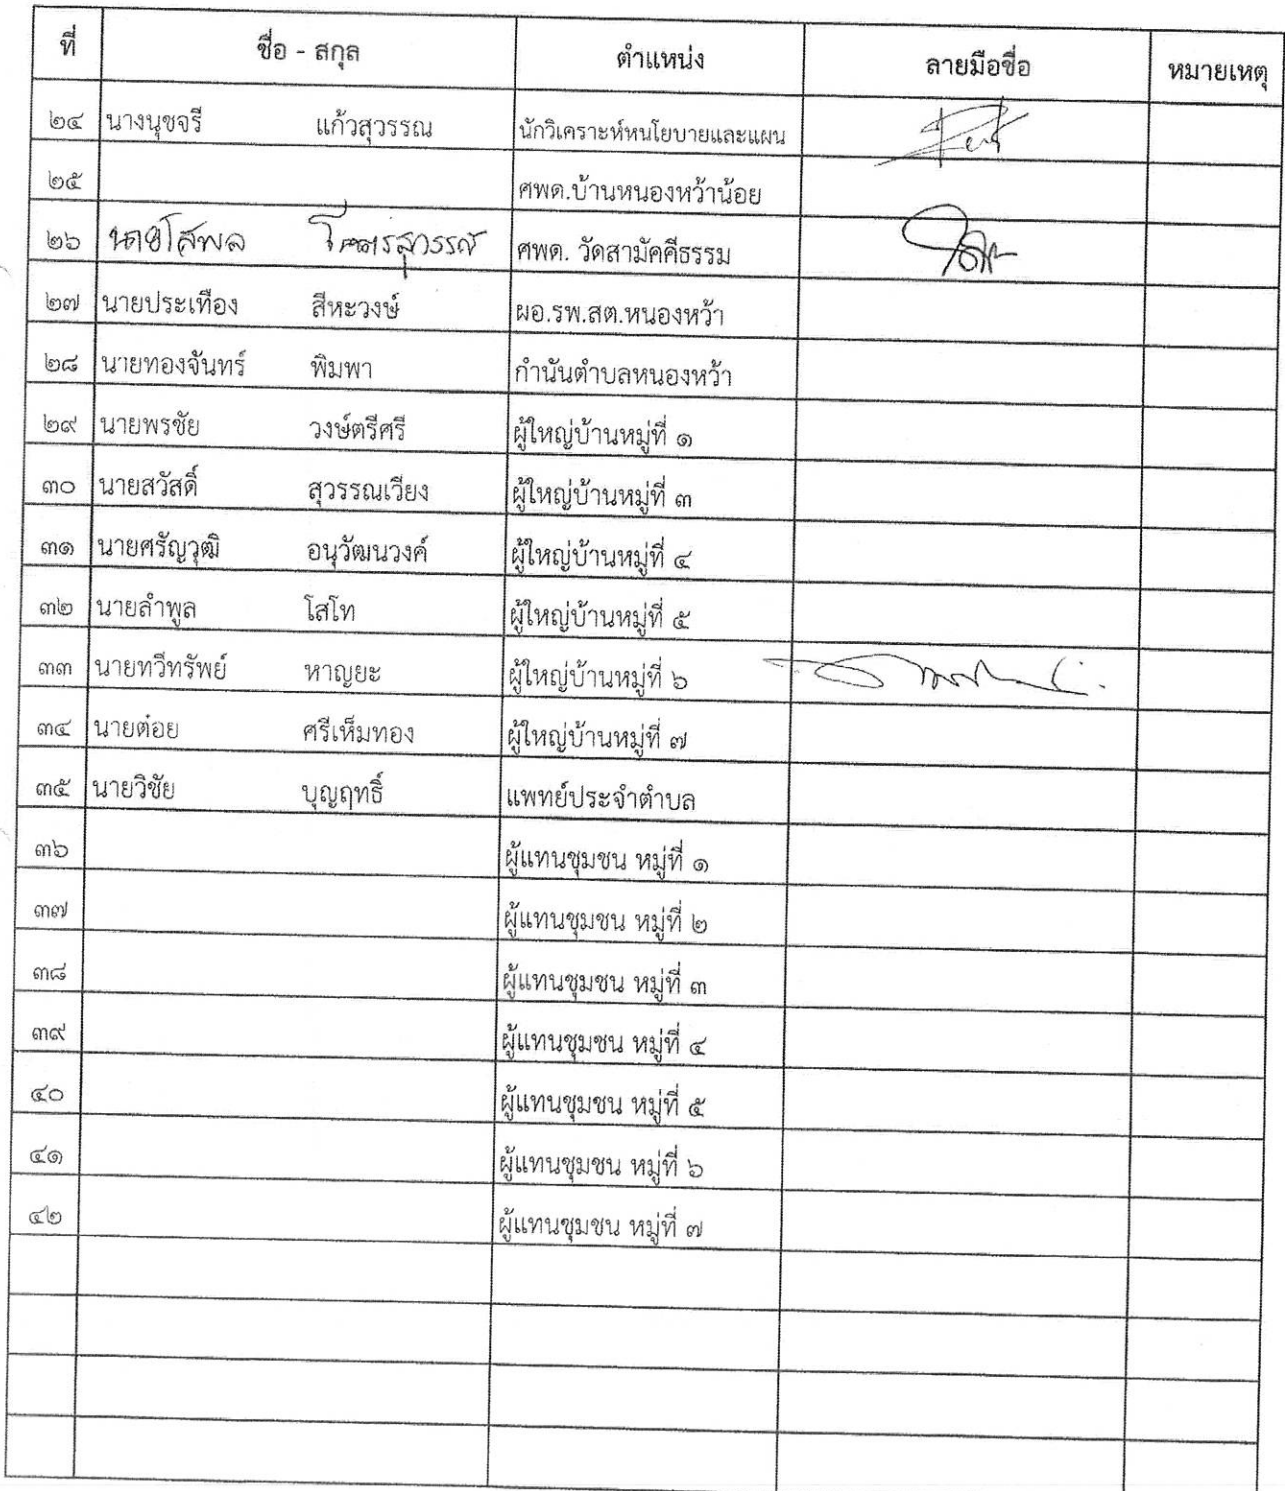 ที่ ชื่อ - สกุล ตำแหน่ง ลายมือชื่อ หมายเหตุ
๒๔ นางนุชจรี แก้วสุวรรณ นักวิเคราะห์หนโยบายและแผน
๒๕ ศพด.บ้านหนองหว้าน้อย
๒๖ นายโสพล โคตรสุวรรณ ศพด. วัดสามัคคีธรรม
๒๗ นายประเทือง สีหะวงษ์ ผอ.รพ.สต.หนองหว้า
๒๘ นายทองจันทร์ พิมพา กำนันตำบลหนองหว้า
๒๙ นายพรชัย วงษ์ตรีศรี ผู้ใหญ่บ้านหมู่ที่ ๑
๓๐ นายสวัสดิ์ สุวรรณเวียง ผู้ใหญ่บ้านหมู่ที่ ๓
๓๑ นายศรัญวุฒิ อนุวัฒนวงค์ ผู้ใหญ่บ้านหมู่ที่ ๔
๓๒ นายลำพูล โสโท ผู้ใหญ่บ้านหมู่ที่ ๕
๓๓ นายทวีทรัพย์ หาญยะ ผู้ใหญ่บ้านหมู่ที่ ๖
๓๔ นายต๋อย ศรีเห็มทอง ผู้ใหญ่บ้านหมู่ที่ ๗
๓๕ นายวิชัย บุญฤทธิ์ แพทย์ประจำตำบล
๓๖ ผู้แทนชุมชน หมู่ที่ ๑
๓๗ ผู้แทนชุมชน หมู่ที่ ๒
๓๘ ผู้แทนชุมชน หมู่ที่ ๓
๓๙ ผู้แทนชุมชน หมู่ที่ ๔
๔๐ ผู้แทนชุมชน หมู่ที่ ๕
๔๑ ผู้แทนชุมชน หมู่ที่ ๖
๔๒ ผู้แทนชุมชน หมู่ที่ ๗